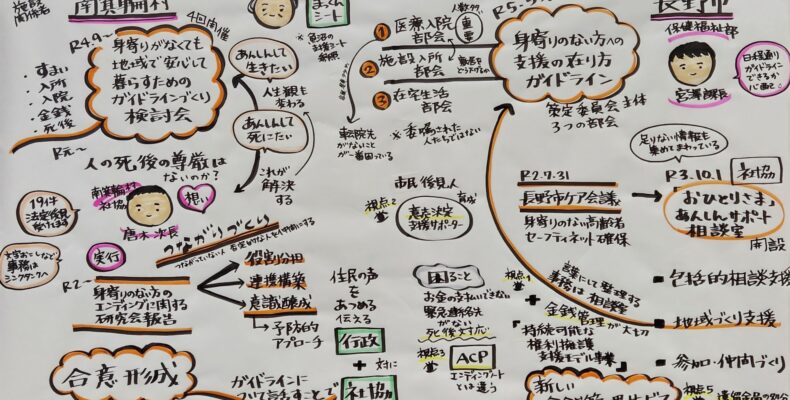 施設
関係者
南箕輪村
4回開催
R4.9〜
身寄りがなくても
地域で安心して
暮らすための
ガイドラインづくり
検討会
・すまい
・入所
・入院
・金銭
・死後
R元〜
まくん
シート
あんしんして
生きたい
人生観も
変わる
あんしんして
死にたい
これが
解決する
人の死後の尊厳は
ないのか?
南箕輪村
社協
唐木次長
想い
19件
法定後見
受けてます
実行
つながりづくり
R2〜
身寄りのない方の
エンディングに関する
研究会報告
役割分担
連携構築
意識醸成
予防的
アプローチ
住民の声
を
あつめる
伝える
行政
+
対に
社協
合意形成
ガイドラインに
ついて話すことで
R5.
①医療入院
部会
人数多め
重要
②施設入所
部会
③在宅生活
部会
転院先
がないこと
が一番困っている
※委嘱された
人たちではない
身寄りのない方への
支援の在り方
ガイドライン
策定委員会主体
3つの部会
長野市
保健福祉部
宮澤部長
日程通り
ガイドライン
できるか
心配
足りない情報も
集めてまわっている
市民後見人
育成
視点2
意思決定
支援サポーター
R2.7.31
長野市ケア会議
身寄りのない高齢者
セーフティネット確保
R3.10.1
社協
「おひとりさま」
あんしんサポート
相談室
開設
困ること
お金の支払いできない
緊急連絡先
がない
死後対応
視点3
ACP
エンディングノート
とは違う
視点1
+
金銭管理が大切
「持続可能な
権利擁護
支援モデル事業」
■包括的相談支援
■地域づくり支援
■参加・仲間づくり
新しい
視点5